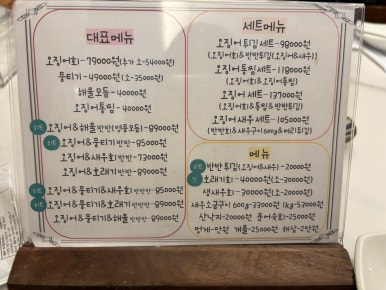 대표메뉴
오징어회-79000원(추가 소-54000원)
물티기-49000원(소-35000원)
해물모듬-40000원
오징어통찜-40000원
오징어&해물반반(멍물모듬)-89000원
오징어&물티기반반-85000원
오징어&새우회반반-73000원
오징어&호래기반반-89000원
오징어&물티기&새우회반반반-85000원
오징어&물티기&호래기반반반-89000원
오징어&물티기&해물반반반-89000원
세트메뉴
오징어튀김세트-98000원
(오징어회&반반튀김(오징어&새우))
오징어통찜세트-118000원
(오징어회&오징어통찜)
오징어세트-137000원
(오징어회&통찜&반반튀김)
오징어새우세트-105000원
(반반회&새우구이600g&머리튀김)
메뉴
반반튀김(오징어&새우)-20000원
호래기회-40000원(소-30000원)
생새우회-30000원(소-20000원)
새우소금구이 600g-33000원 1kg-53000원
산낙지-20000원 문어숙회-25000원
멍게-만원 개불-25000원 해삼-2만원